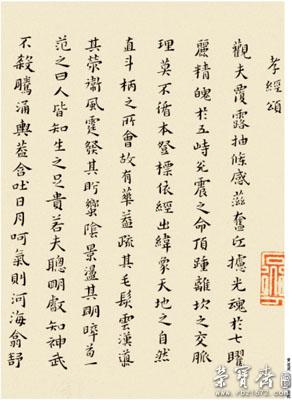 孝經頌
觀夫覆露抽條感蒸奮攄光魂於七曜
麗精魄於五峙兌震之命頂踵離坎之交脈
理莫不循本登標依經出緯象天地之自然
直斗柄之所會故有華蓋疏其毛髮雲漢
其榮衛風霆發其肸蠁陰景盪其明晬首一
范之曰人皆知生之足貴若夫聰明叡知神武
不殺騰涌輿蓋含吐日月呵氣則河海翕舒
榮寶齋
www.rbz1672.com